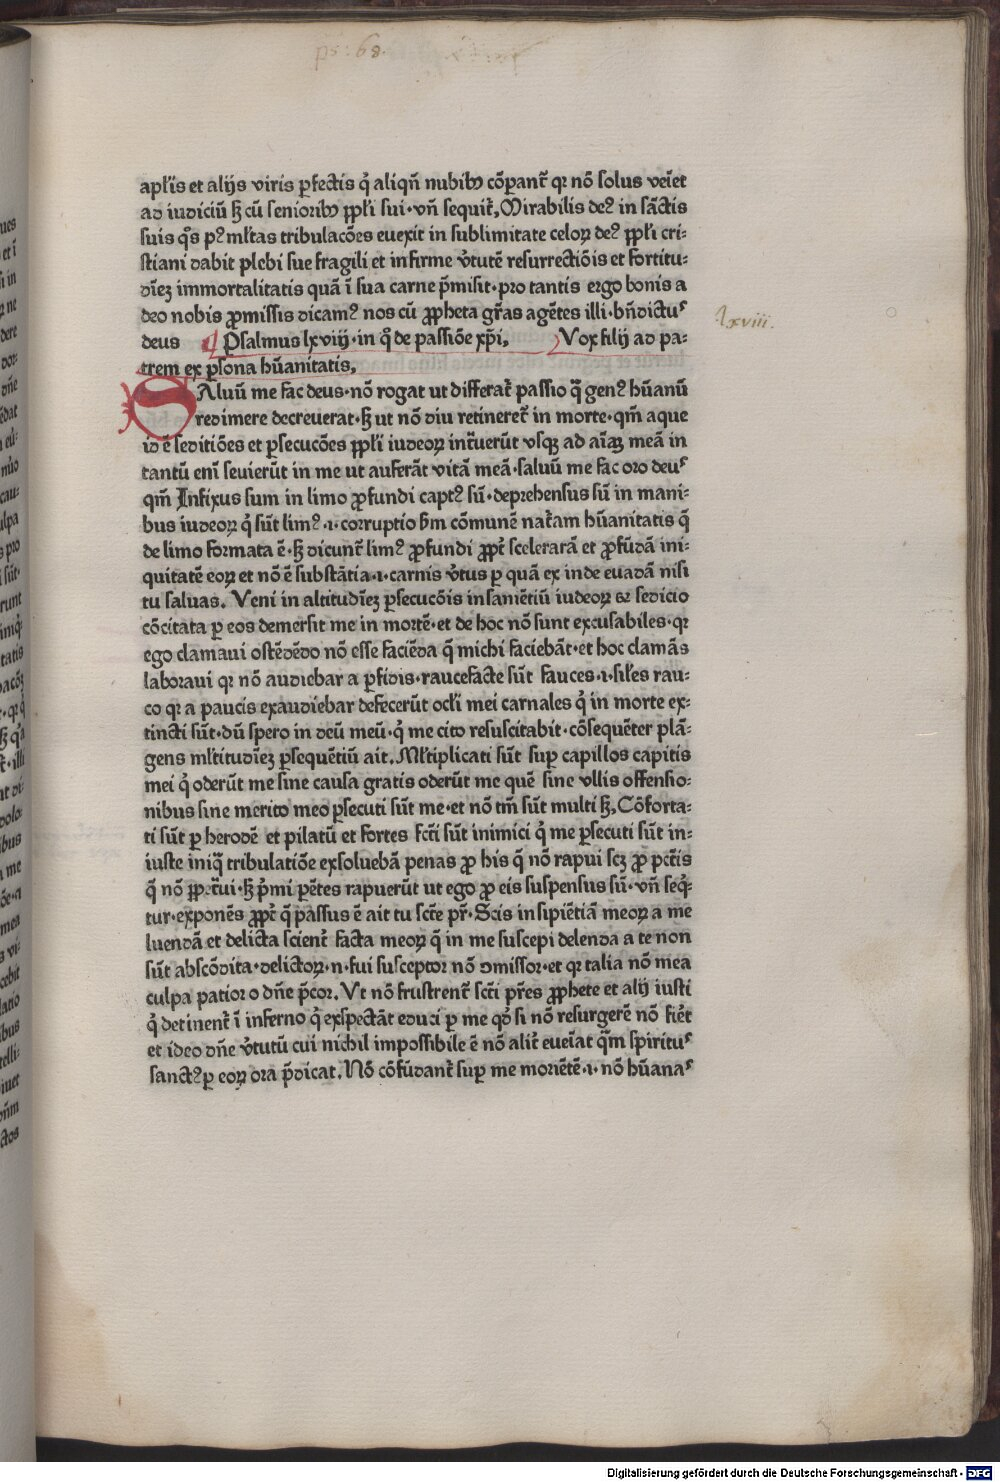 ps: 68.
apl'is et alijs viris ꝑfectis q̇ aliqñ nubibꝰ cōꝑant᷑ qꝛ nō solus veīet
ad iudiciū ſꝫ cū seniorībꝰ ppl'i sui·vñ sequit᷑, Mirabilis deꝰ in sāctis
suis qͦs pꝰ ml'tas tribulacōes euexit in sublimitate celoꝝ deꝰ ppl'i cri⸗
stiani dabit plebi sue fragili et infirme v̓tutē resurrectiōis et fortitu⸗
dīeꝫ immortalitatis quā ī sua carne p̄misit·pro tantis ergo bonis a
deo nobis ꝓmissis dicamꝰ nos cū ꝓpheta gr̄as agētes illi·bn̄dictuˢ
deus Psalmus lxviij·in q̇ de passiōe xp̄i, Vox filij ad pa⸗
trem ex ꝑsona hūanitatis,
lxviii.
SAluū me fac deus·nō rogat ut differat᷑ passio q̄ genꝰ hūanū
redimere decreuerat·ſꝫ ut nō diu retineret᷑ in morte·qm̄ aque
id ē seditiōes et ꝑsecucōes ppl'i iudeoꝝ int᷑uerūt vsqꝫ ad aīaꝫ meā in
tantū enī seuierūt in me ut auferāt vitā meā·saluū me fac oro deuˢ
qm̄ Infixus sum in limo ꝓfundi captꝰ sū·deprehensus sū in mani⸗
bus iudeoꝝ q̇ sūt limꝰ·i·corruptio bm̄ cōmunē nat᷑am hūanitatis q̄
de limo formata ē·ſꝫ dicunt᷑ limꝰ ꝓfundi ꝓpt᷑ scelerarā et ꝓfūdā ini⸗
quitatē eoꝝ et nō ē substātia·i·carnis v̓tus ꝑ quā ex inde euadā nisi
tu saluas. Veni in altitudīeꝫ ꝑsecucōis insaniētiū iudeoꝝ ⁊ sedicio
cōcitata ꝑ eos demersit me in mortē·et de hoc nō sunt excusabiles·qꝛ
ego clamaui ostēdēdo nō esse faciēda q̄ michi faciebāt·et hoc clamās
laboraui qꝛ nō audiebar a ꝑfidis·raucefacte sūt fauces·i·sil'es rau⸗
co qꝛ a paucis exaudiebar defecerūt ocl'i mei carnales q̇ in morte ex⸗
tincti sūt·dū spero in deū meū·q̇ me cito resuscitabit·cōsequēter plā⸗
gens ml'titudīeꝫ ꝑsequētiū ait, Ml'tiplicati sūt suꝑ capillos capitis
mei q̇ oderūt me sine causa gratis oderūt me quē sine vllis offensio⸗
nibus sine merito meo ꝑsecuti sūt me·et nō tm̄ sūt multi ſꝫ, Cōforta⸗
ti sūt ꝑ herodē et pilatū et fortes fc̄ti sūt inimici q̇ me ꝑsecuti sūt in⸗
iuste iniq̄ tribulatiōe exsoluebā penas ꝓ his q̄ nō rapui scꝫ ꝓ pc̄tis
q̄ nō ꝑpet᷑ui·ſꝫ p̓mi pētes rapuerūt ut ego ꝓ eis suspensus sū·vñ seq̇⸗
tur·exponēs ꝓpt᷑ q̄ passus ē ait tu sc̄te pr̄·Scis insipiētiā meoꝝ a me
luendā et delicta scient᷑ facta meoꝝ q̄ in me suscepi delenda a te non
sūt abscōdita·delictoꝝ·n·fui susceptor nō ɔmissor·et qꝛ talia nō mea
culpa patior o dn̄e p̄cor, Vt nō frustrent᷑ sc̄ti pr̄es ꝓphete et alij iusti
q̇ detinent᷑ ī inferno q̇ exspectāt educi ꝑ me qd̓ si nō resurgerē nō fiet᷑
et ideo dn̄e v̓tutū cui nichil impossibile ē nō alit᷑ eueīat q̄m spirituˢ
sanctꝰ ꝑ eoꝝ ora p̄dicat, Nō cōfūdant᷑ suꝑ me moriētē·i·nō hūanaˢ
Digitalisierung gefördert durch die Deutsche Forschungsgemeinschaft - DFG